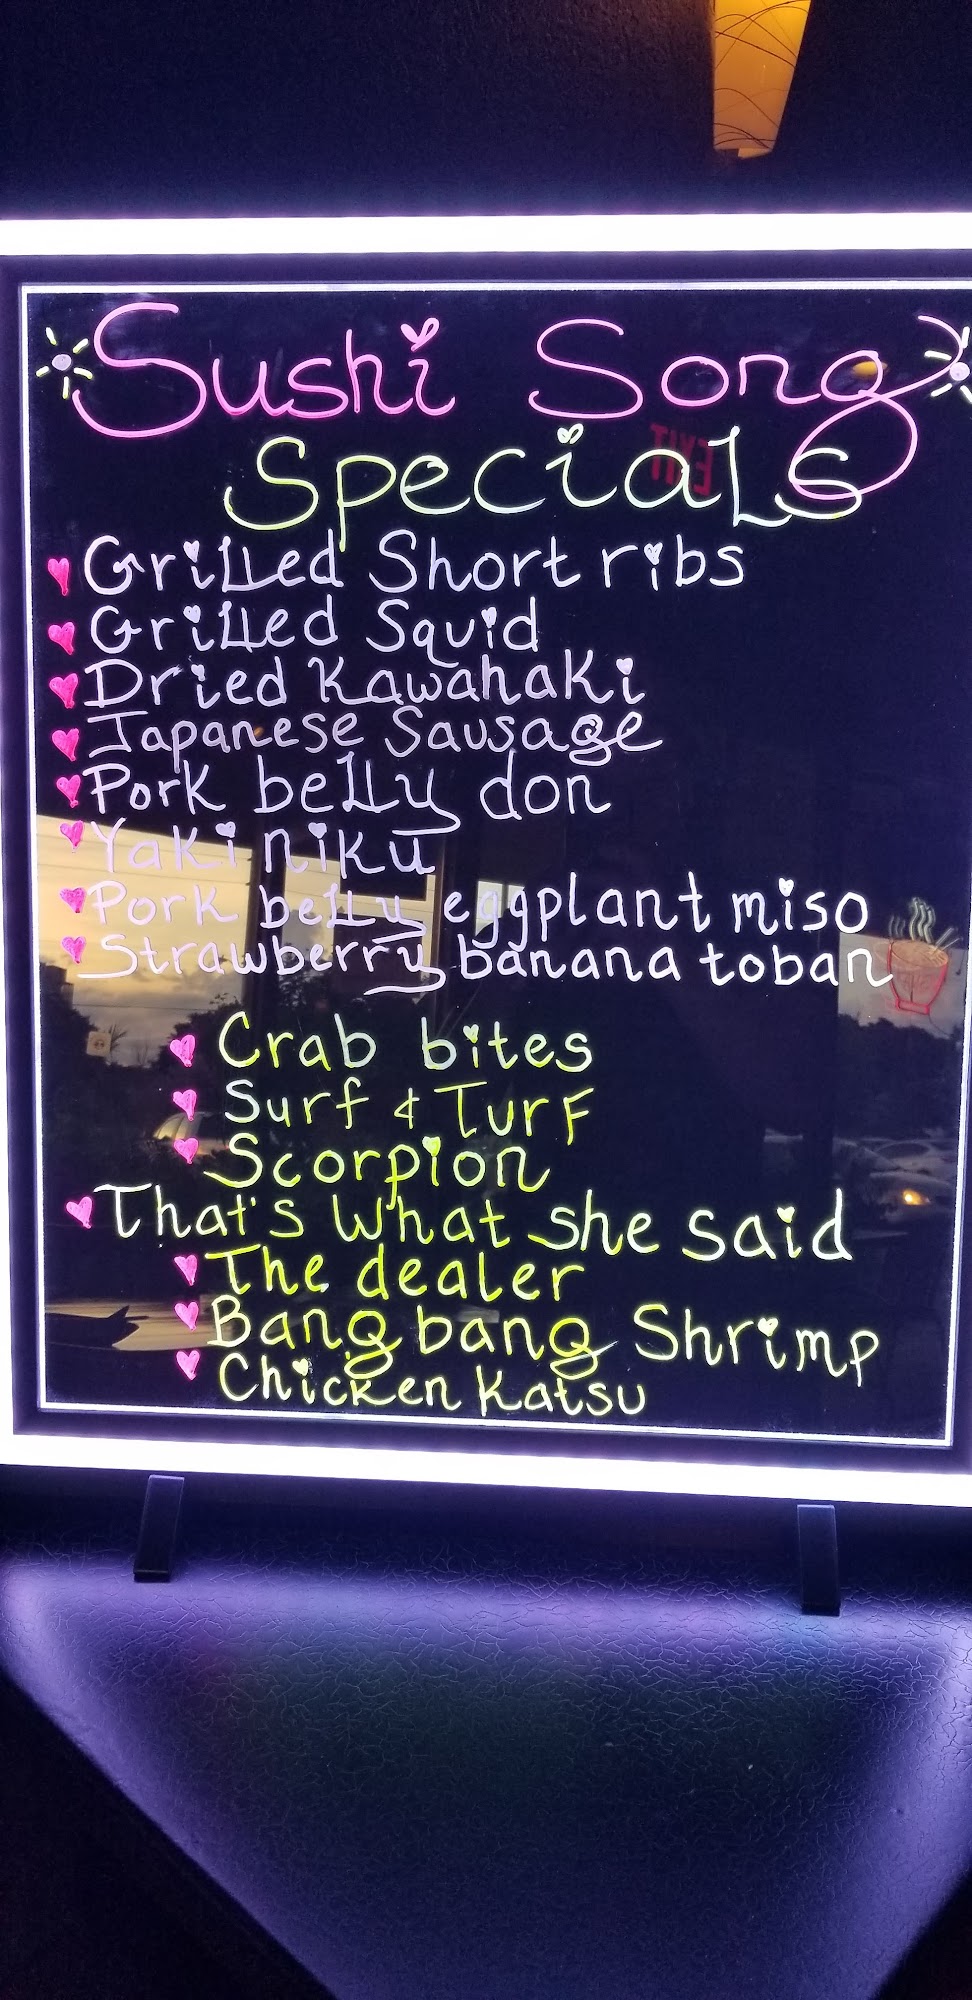 Sushi Song
Specials
Grilled Short ribs
Grilled Squid
Dried Kawahaki
Japanese Sausage
Pork belly don
Yaki niku
Pork belly eggplant miso
Strawberry banana toban
Crab bites
Surf & Turf
Scorpion
That's What she said
The dealer
Bang bang Shrimp
Chicken Katsu
EXIT